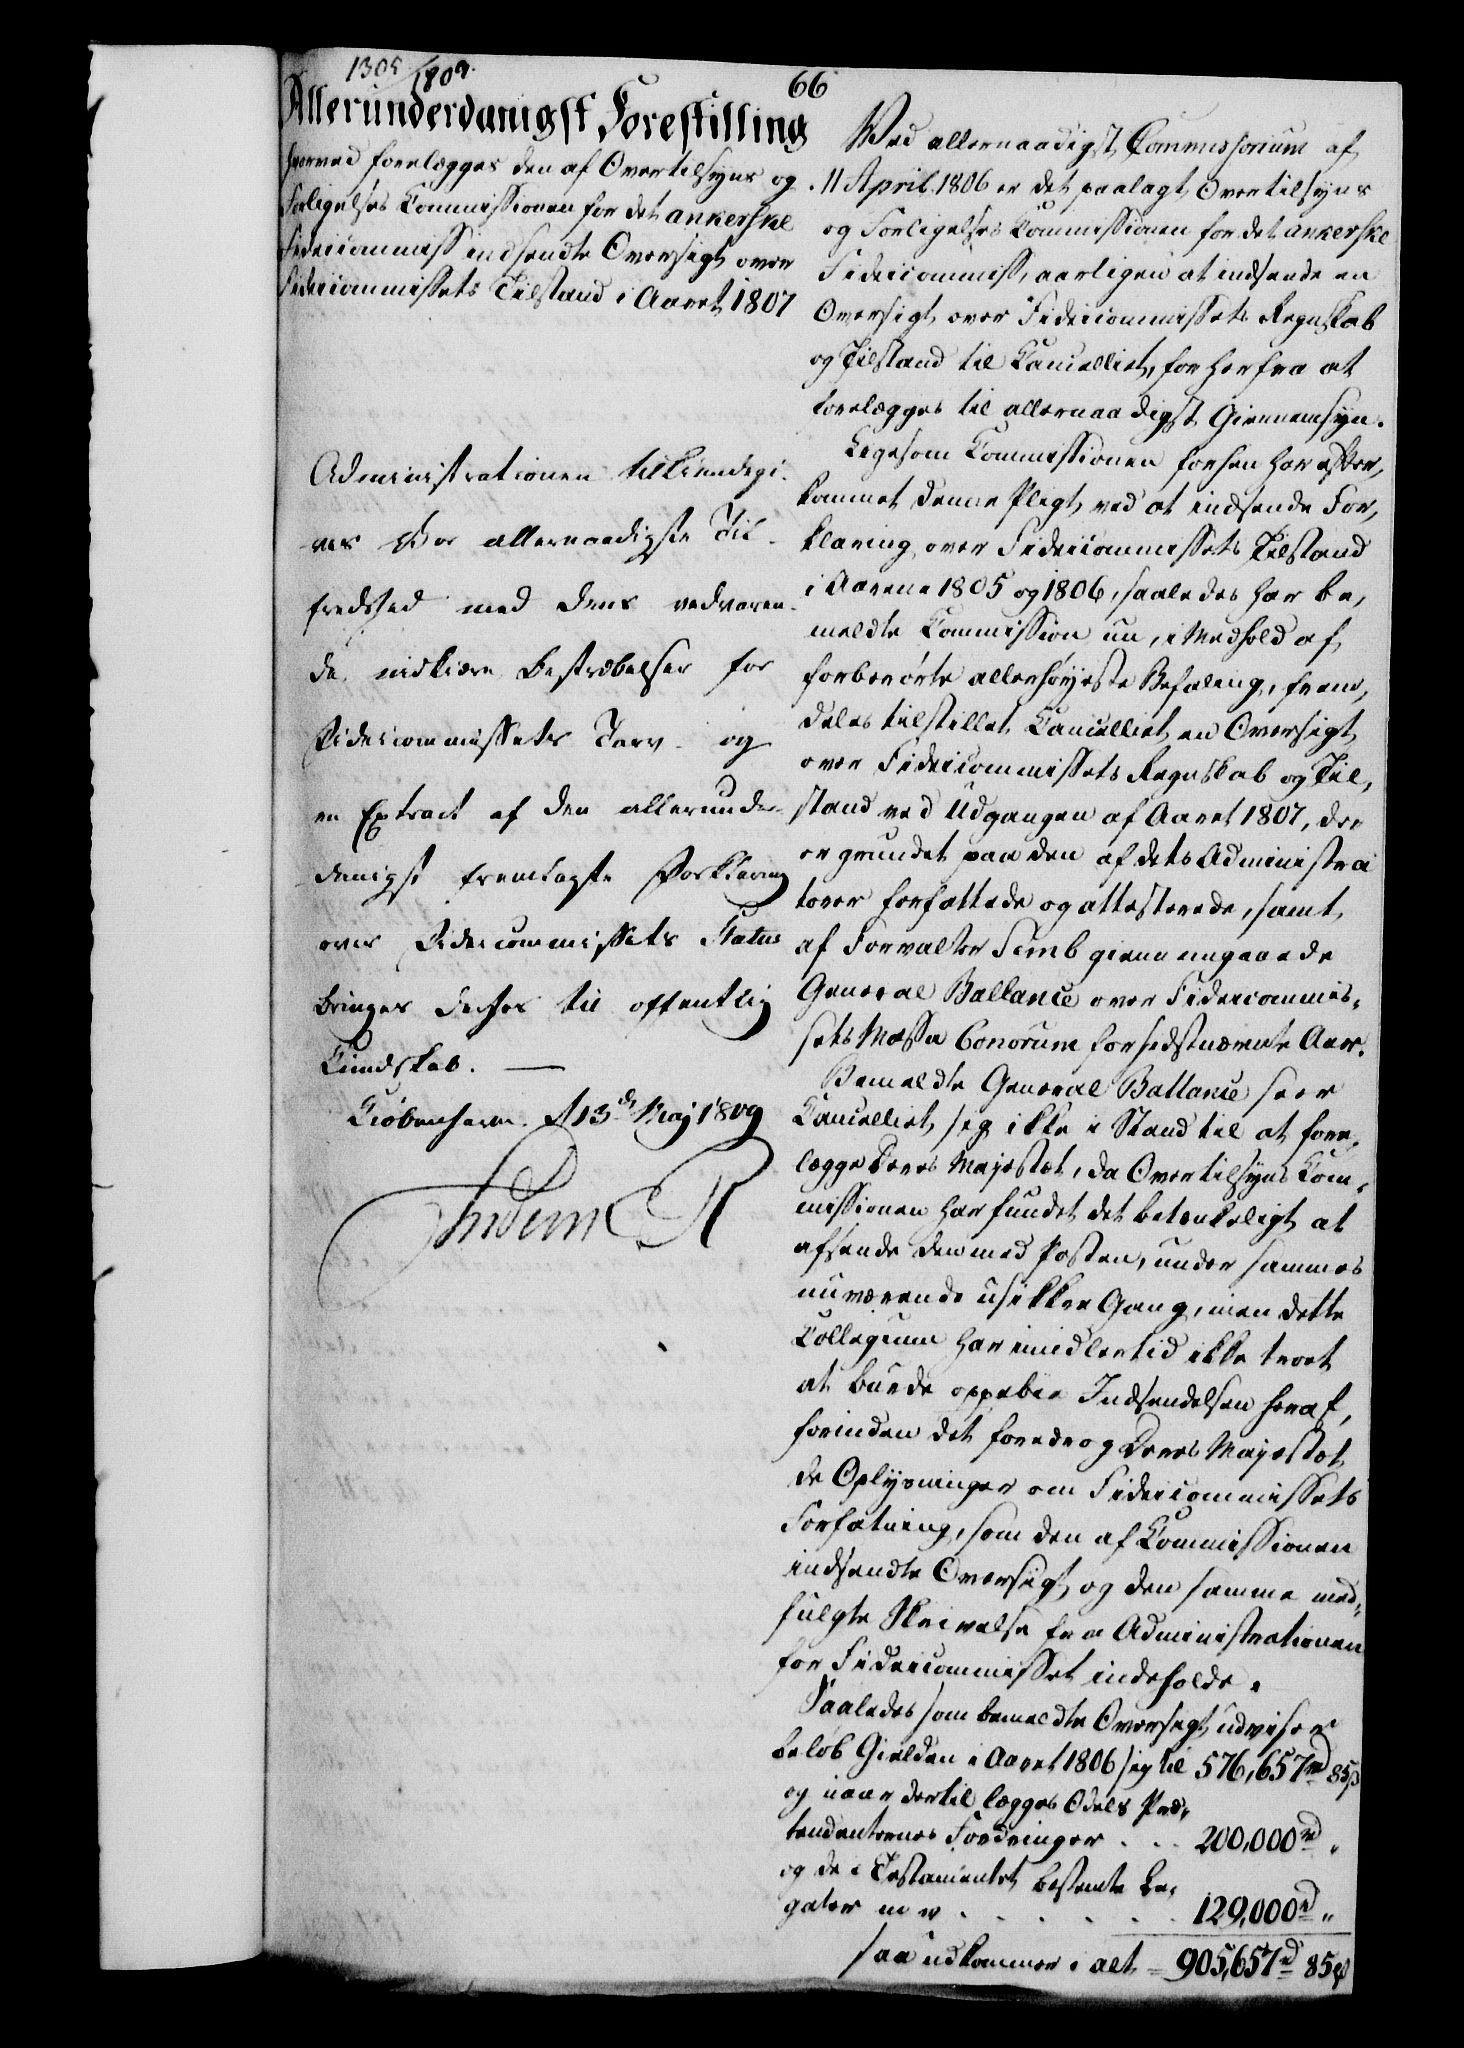 1305/1809.
66
Allerunderdanigst Forestilling
hvorved forelægges den af Overtilsyns og
Forligelses Commissionen for det ankerske
Fideicommiss indsendte Oversigt over
Fideicommissets Tilstand i Aaret 1807
Administrationen tilkiendegi-
ves Vor allernaadigste Til-
fredshed med dens vedvaren-
de nidkiære Bestræbelser for
Fideicommissets Tarv og
en Extract af den allerunder-
danigst fremlagte Forklaring
over Fideicommissets Status
bringes derhos til offentlig
Kundskab. —
Kiøbenhavn d 13de Maj 1809
Friderich R
Ved allernaadigst Commissorium af
11 April 1806 er det paalagt Overtilsyns
og Forligelses Kommissionen for det ankerske
Fideicommiss, aarligen at indsende en
Oversigt over Fideicommissets Regnskab
og Tilstand til Cancelliet, for herfra at
forelægges til allernaadigst Giennemsyn.
Ligesom Commissionen forhen har efter,
kommet denne Pligt ved at indsende For,
klaring over Fideicommissets Tilstand
i Aarene 1805 og 1806, saaledes har be,
meldte Commission nu, i Medhold af
forberørte allerhøyeste Befaling, frem,
deles tilstillet Cancelliet en Oversigt
over Fideicommissets Regnskab og Til,
stand ved Udgangen af Aaret 1807, der
er grundet paa den af dets Administra
torer forfattede og attesterede, samt
af Forvalter Simb giennemgaaede
General Ballance over Fideicommis-
sets Massa bonorum for sidstnævnte Aar.
Bemeldte General Ballance seer
Cancelliet sig ikke i Stand til at fore-
lægge Deres Majestæt, da Overtilsyns Com-
missionen har fundet det betænkeligt at
afsende den med Posten, under sammes
nuværende usikkre Gang, men dette
Collegium har imidlertid ikke troet
at burde oppebie Indsendelsen heraf,
forinden det foredrog Deres Majestæt
de Oplysninger om Fideicommissets
Forfatning, som den af Commissionen
indsendte Oversigt og den samme med-
fulgte Skrivelse fra Administrationen
for Fideicommisset indeholde.
Saaledes som bemeldte Oversigt udviser
beløb Gielden i Aaret 1806 sig til 576,657rd 85ß
og naar dertil lægges Odels Præ-
tendenternes Fordringer . . . 200,000rd „
og de i Testamentet bestemte Le-
gater m v . . . . . . 129,000rd „
saa udkommer i alt = 905,657rd 85ß